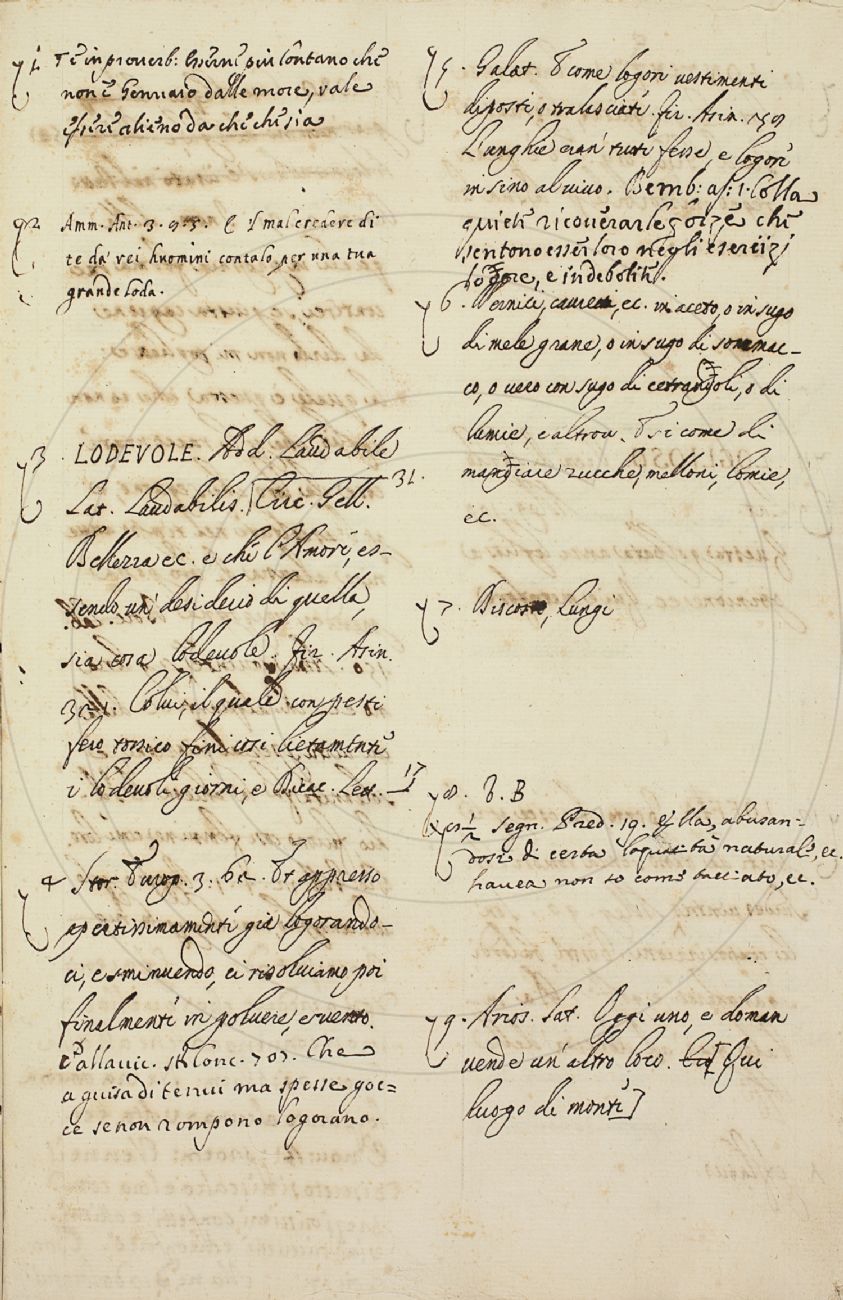 1. E in proverb: Esserne più lontano che
non è Gennaio dalle more, vale
essere alieno da che che sia
2 Amm. Ant. 3. 9. 3. E 'l mal credere di
te da rei huomini contalo per una tua
grande loda.
3. LODEVOLE. Add. Laudabile
Lat. Laudabilis. Circ. Gell. 31.
Bellezza ec. e che l'Amore, es-
sendo un desiderio di quella,
sia cosa lodevole. Fir. Asin.
Colui, il quale con pesti
fero tossico finì così lietamente
i lodevoli giorni, e Dicac. Lett. 17
4 Stor. Europ. 3. 62. Et appresso
apertissimamente già logorando-
ci, e sminuendo, ci risolviamo poi
finalmente in polvere, e vento.
Pallavic. st. Conc. 707. Che
a guisa di tenui ma spesse goc=
ce se non rompono logorano.
5. Galat. E come logori vestimenti
diposti, o tralasciati. Fir. Asin. 159
L'unghie eran tutte fesse, e logore
insino al vivo. Bemb: as: 1. Colla
quiete ricoverar le forze che
sentono esser loro negli esercizj
logore, e indebolite.
6. Vernice, ec. in aceto, o in sugo
di mele grane, o in sugo di sommac-
co, o vero con sugo di cetrangoli, o di
lumie, e altrov. E sì come di
mangiare zucche, melloni, lomie,
ec.
7. Discosto, Lungi
8. V. B
8 1/2 Segn. Pred. 19. Ella, abusan=
dosi di certa loquacità naturale, ec.
havea non so come tacciato, ec.
9. Arios. Sat. Oggi uno, e doman
vende un altro loco. [Qui
luogo di monte]